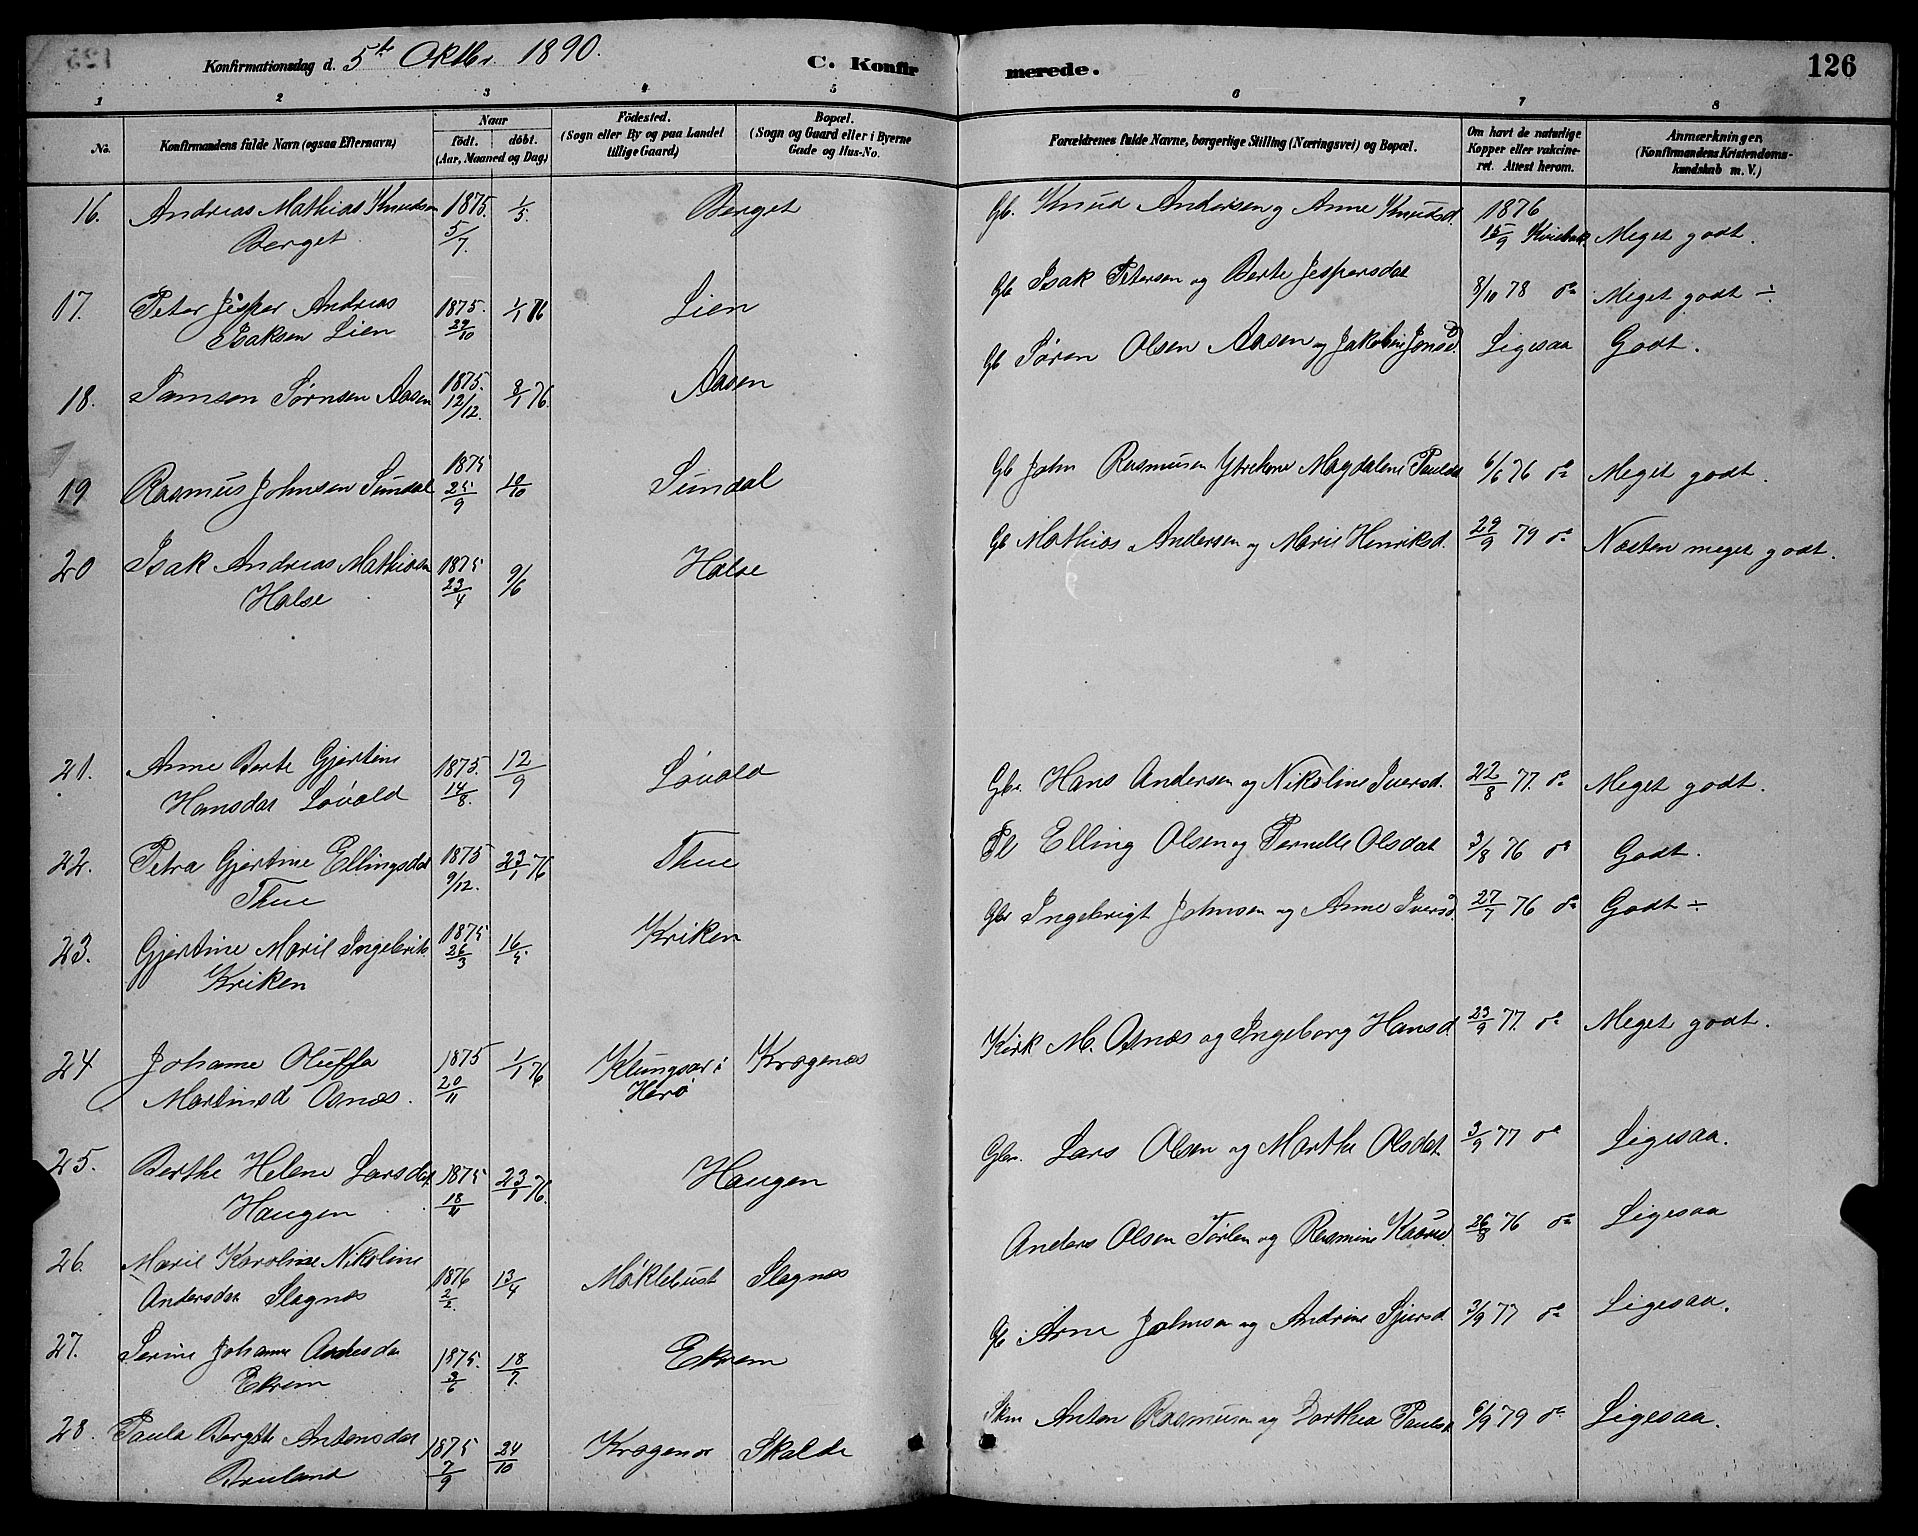 Konfirmationsdag d. 5te Oktbr 1890.
C. Konfirmerede.
126
1 2 3 4 5 6 7 8
No.
Konfirmandens fulde Navn (ogsaa Efternavn)
Naar
födt. döbt.
(Aar, Maaned og Dag)
Födested.
(Sogn eller By og paa Landet
tillige Gaard)
Bopæl.
(Sogn og Gaard eller i Byerne
Gade og Hus-No.
Forældrenes fulde Navne, borgerlige Stilling (Næringsvei) og Bopæl.
Om havt de naturlige
Kopper eller vakcine-
ret. Attest herom.
Anmærkninger,
(Konfirmandens Kristendoms-
kundskab m. V.)
16. Andreas Mathias Knudsen 1875. 1/5. Berget Gb. Knud Andersen og Anne Knudsd. 1876
Berget 5/7. 15/9 Meget godt.
17. Peter Jesper Andreas 1875. 1/1 76 Lien Gb Isak Petersen og Berte Jespersdat 8/10 78 do Meget godt ÷
Isaksen Lien 29/10
18. Samson Sørnsen Aasen 1875. 12/12. 8/1 76. Aasen Gb Søren Olsen Aasen og Jakobine Jonsd. Ligesaa Godt.
19 Rasmus Johnsen Sundal 1875 25/9 10/10 Sundal Gb John Rasmusen Magdalene Paulsd 6/6 76 do Meget godt.
20 Isak Andreas Mathiasen 1875 9/6 Halse Gb Mathias Andersen og Marie Henriksd. 29/9 79 do Næsten meget godt.
Halse 23/4
21. Anne Berte Gjertine 1875. 12/9 Løvold Gbr. Hans Andersen og Nikoline Iversd. 22/8 77. do Meget godt.
Hansdat Løvold 14/8.
22. Petra Gjertine Ellingsdat 1875 23/1 76 Thue Pl Elling Olsen og Pernelle Olsdat 3/8 76 do Godt.
Thue 9/12.
23. Gjertine Marie Ingebrits 1875 16/5 Kriken Gbr Ingebrigt Johnsen og Anne Iversd. 27/7 76 do Godt ÷
Kriken 26/3
24 Johanne Oluffa 1875 1/1 76 Klungsør i Kragenæs Kirk M. Osnæs og Ingeborg Hansd. 23/9 77. do Meget godt.
Martinsd Osnæs. 20/11 Herø
25. Berthe Helene Larsdat. 1875 23/1 76. Haugen Gbr. Lars Olsen og Marthe Olsdat. 3/9 77 do Ligesaa.
Haugen 18/11
26. Marie Karoline Nikoline 1876 13/4 Møklebust Slagnæs Anders Olsen og Rasmine 26/8 76 do Ligesaa
Andersdat Slagnæs 2/2.
27. Serine Johanne Andesdat 1875. 18/7. Ekrem Gb. Arne Johnsen og Andrine Sjursd. 3/9 77 do Ligesaa.
Ekrem 3/6
28. Paula Bergitte Antonsdat 1875 24/10 Kragenæs Skalde Skm Anton Rasmusen og Dorthea Paulsd. 6/9 79 do Ligesaa.
Bruland 7/9